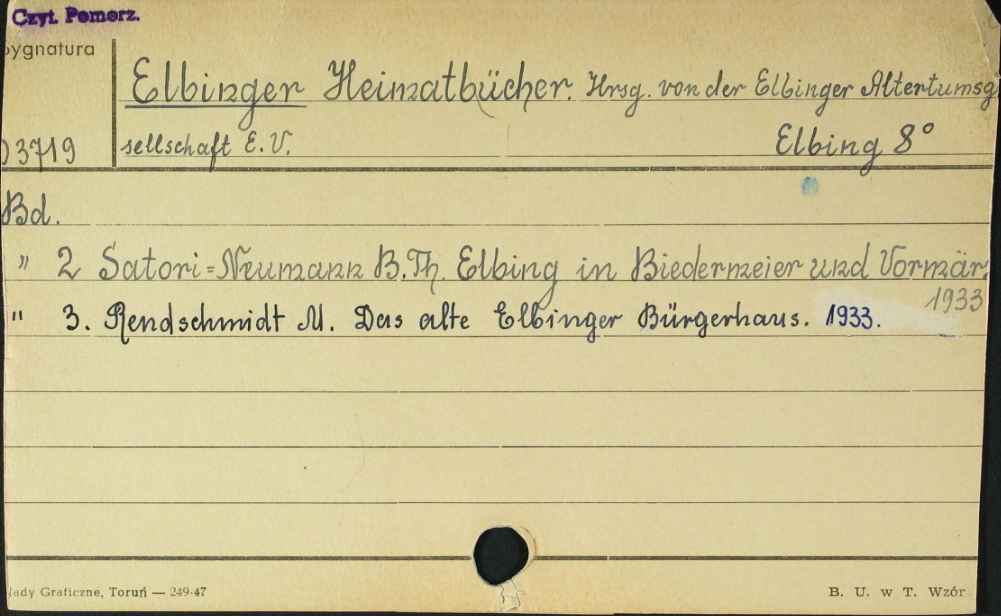 Czyt. Pomorz.
ygnatura
Elbinger Heimatbücher. Hrsg. von der Elbinger Altertumsg
3719 sellschaft E.V. Elbing 8°
Bd.
" 2 Satori=Neumann B.Th. Elbing in Biedermeier und Vormär
1933
" 3. Rendschmidt M. Das alte Elbinger Bürgerhaus. 1933.
łady Graficzne, Toruń — 249-47 B. U. w T. Wzór